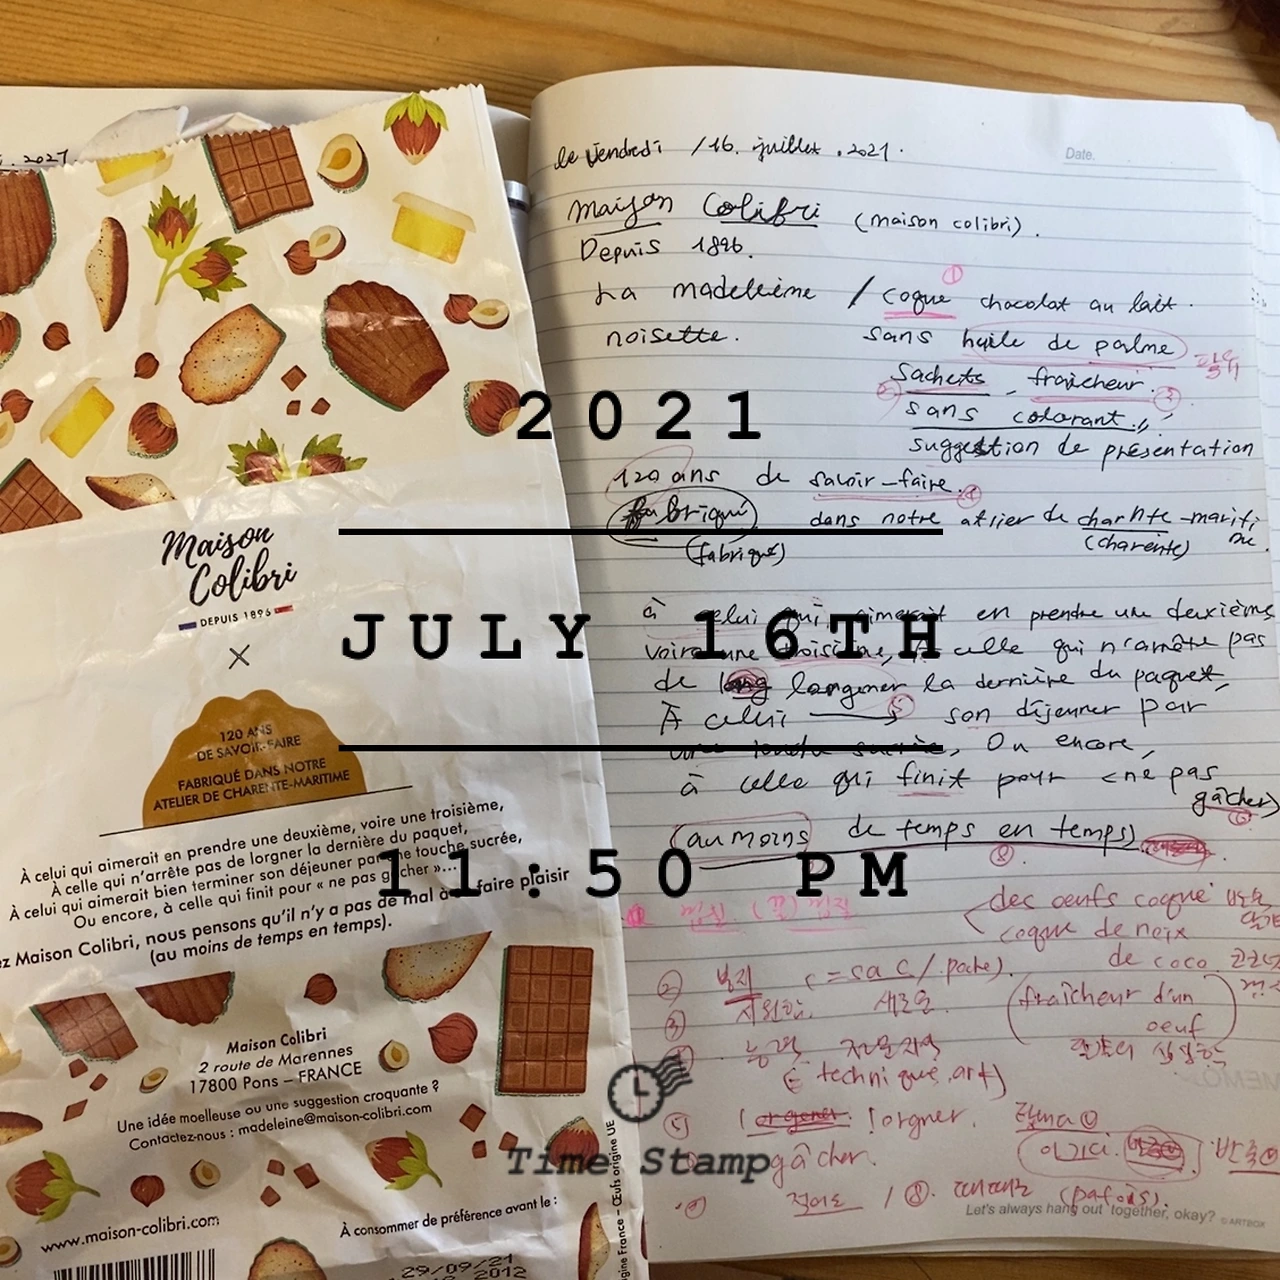 . 2021.
Maison
Colibri
DEPUIS 1896
×
120 ANS
DE SAVOIR-FAIRE
FABRIQUÉ DANS NOTRE
ATELIER DE CHARENTE-MARITIME
À celui qui aimerait en prendre une deuxième, voire une troisième,
À celle qui n'arrête pas de lorgner la dernière du paquet,
À celui qui aimerait bien terminer son déjeuner par une touche sucrée,
Ou encore, à celle qui finit pour « ne pas gâcher »...
ez Maison Colibri, nous pensons qu'il n'y a pas de mal à se faire plaisir
(au moins de temps en temps).
Maison Colibri
2 route de Marennes
17800 Pons – FRANCE
Une idée moelleuse ou une suggestion croquante ?
Contactez-nous : madeleine@maison-colibri.com
www.maison-colibri.com
À consommer de préférence avant le :
29/09/21
2012
igine France – Œufs origine UE
Date.
le Vendredi /16. juillet .2021.
Maison Colibri (maison colibri).
Depuis 1896.
La madeleine / coque chocolat au lait.
①
noisette. sans huile de palme
② sachets, fraîcheur. ③
sans colorant.,,
suggestion de présentation
120 ans de savoir-faire. ④
fabriqué dans notre atlier de charhte-mariti
(fabriqué) (charente) me.
à celui qui aimerait en prendre une deuxième
voire une troisième, À celle qui n'arrête pas
de lorgner la dernière du paquet,
À celui son déjeuner par
⑤
une touche sucrée, Ou encore,
à celle qui finit pour <ne pas
gâcher>
⑥
(au moins de temps en temps).
⑧
des oeufs coque
coque de noix
de coco
② 봉지 (=sac/.poche).
③ 새로운
(fraîcheur d'un
oeuf
능력
(= technique.art)
⑤ lorgner.
gâcher.
아끼다
적어도 / ⑧. 때때로 (parfois).
Let's always hang out together, okay? © ARTBOX
MEMO
2021
JULY 16TH
11:50 PM
Time Stamp